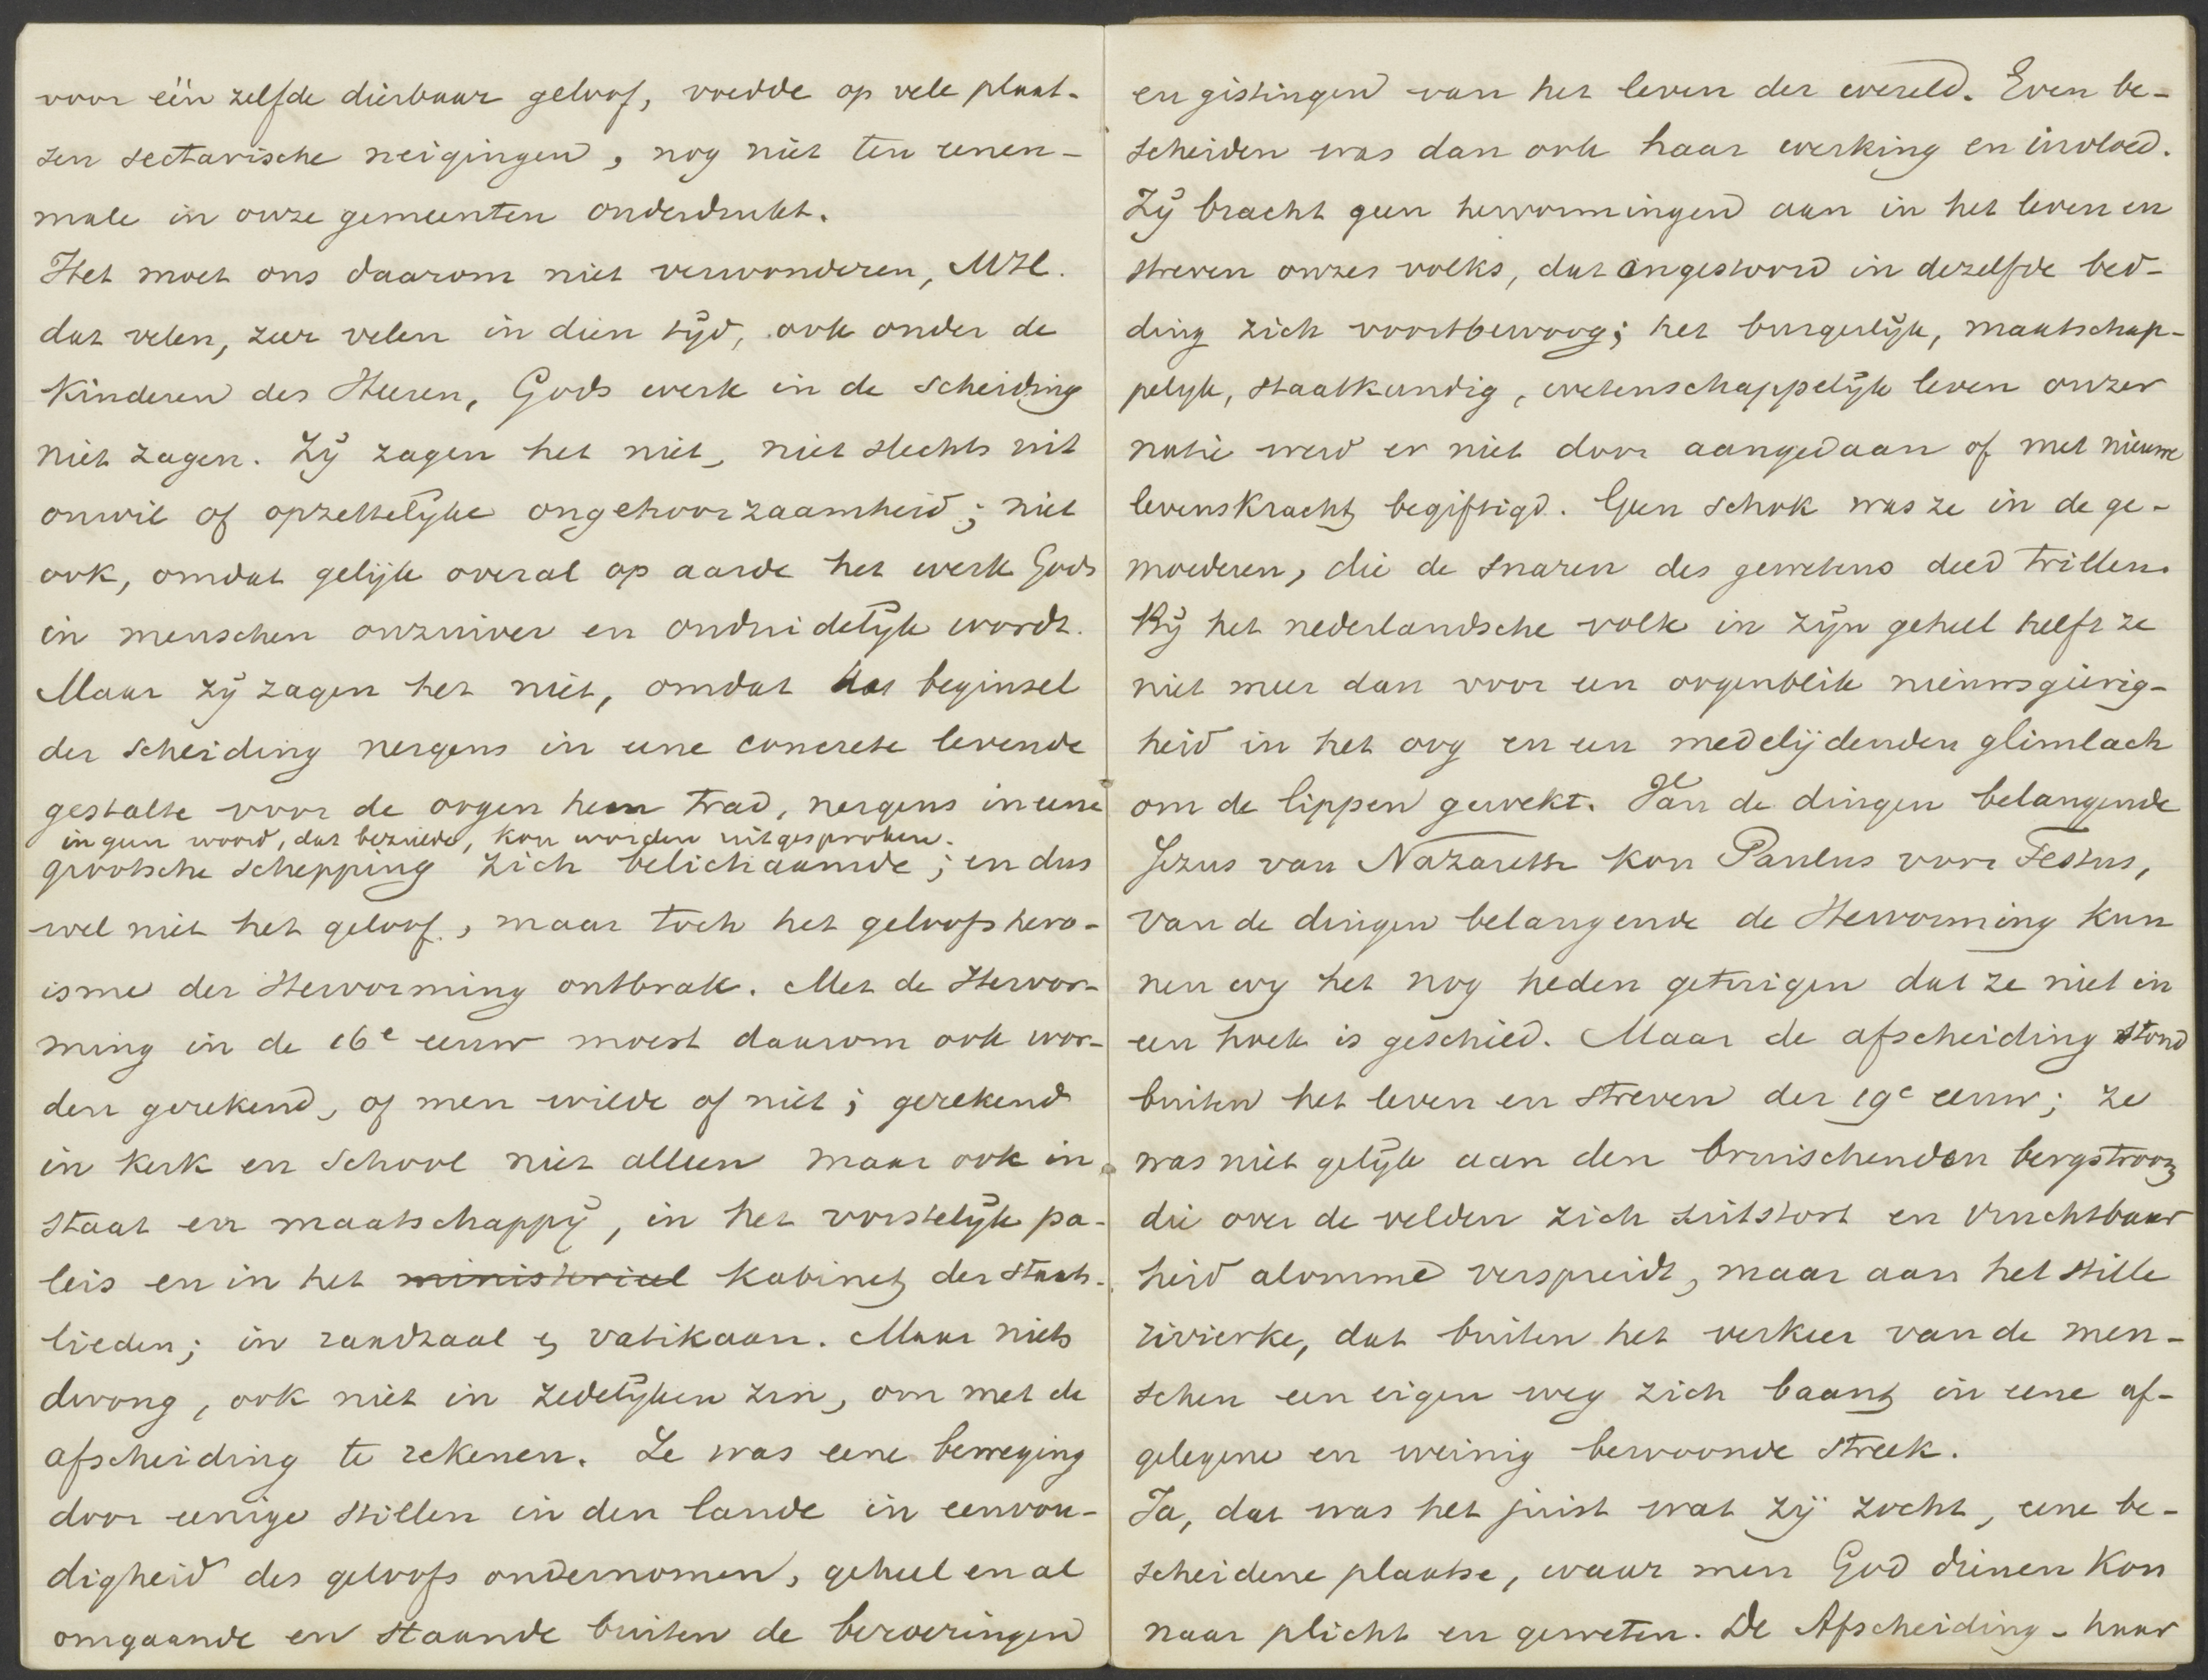 voor één zelfde dierbaar geloof, voedde op vele plaat-
sen sectarische neigingen, nog niet ten eenen-
male in onze gemeenten onderdrukt.
Het moet ons daarom niet verwonderen, MH.
dat velen, zeer velen in dien tijd, ook onder de
Kinderen des Heeren, Gods werk in de scheiding
niet zagen. Zij zagen het niet, niet slechts uit
onwil of opzettelijke ongehoorzaamheid; niet
ook, omdat gelijk overal op aarde het werk Gods
in menschen onzuiver en onduidelijk wordt.
Maar zij zagen het niet, omdat het beginsel
der scheiding nergens in eene concrete levende
gestalte voor de oogen hen trad, nergens in eene
in geen woord, dat bezielde, kon worden uitgesproken.
grootsche schepping zich belichaamde; en dus
wel niet het geloof, maar toch het geloofshero-
isme der Hervorming ontbrak. Met de Hervor-
ming in de 16e eeuw moest daarom ook wor-
den gerekend, of men wilde of niet; gerekend
in Kerk en School niet alleen maar ook in
Staat en maatschappij, in het vorstelijk pa-
leis en in het ministerieel kabinet der staats-
lieden; in raadzaal en vatikaan. Maar niets
dwong, ook niet in zedelijken zin, om met de
afscheiding te rekenen. Ze was eene beweging
door eenige stillen in den lande in eenvou-
digheid des geloofs ondernomen, geheel en al
omgaande en staande buiten de beroeringen
en gistingen van het leven der wereld. Even be-
scheiden was dan ook haar werking en invloed.
Zij bracht geen hervormingen aan in het leven en
streven onzes volks, dat ongestoord in dezelfde bed-
ding zich voortbewoog; het burgerlijk, maatschap-
pelijk, staatkundig, wetenschappelijk leven onzer
natie werd er niet door aangedaan of met nieuwe
levenskracht begiftigd. Geen schok was ze in de ge-
moederen, die de snaren des gewetens deed trillen.
Bij het nederlandsche volk in zijn geheel heeft ze
niet meer dan voor een oogenblik nieuwsgierig-
heid in het oog en een medelijdenden glimlach
om de lippen gewekt. Van de dingen belangende
Jezus van Nazareth kon Paulus voor Festus,
van de dingen belangende de Hervorming kun
nen wij het nog heden getuigen dat ze niet in
een hoek is geschied. Maar de afscheiding stond
buiten het leven en streven der 19e eeuw; ze
was niet gelijk aan den bruischenden bergstroom
die over de velden zich uitstort en vruchtbaar
heid alomme verspreidt, maar aan het stille
rivierke, dat buiten het verkeer van de men-
schen een eigen weg zich baant in eene af-
gelegene en weinig bewoonde streek.
Ja, dat was het juist wat zij zocht, eene be-
scheidene plaatse, waar men God dienen Kon
naar plicht en geweten. De Afscheiding - haar